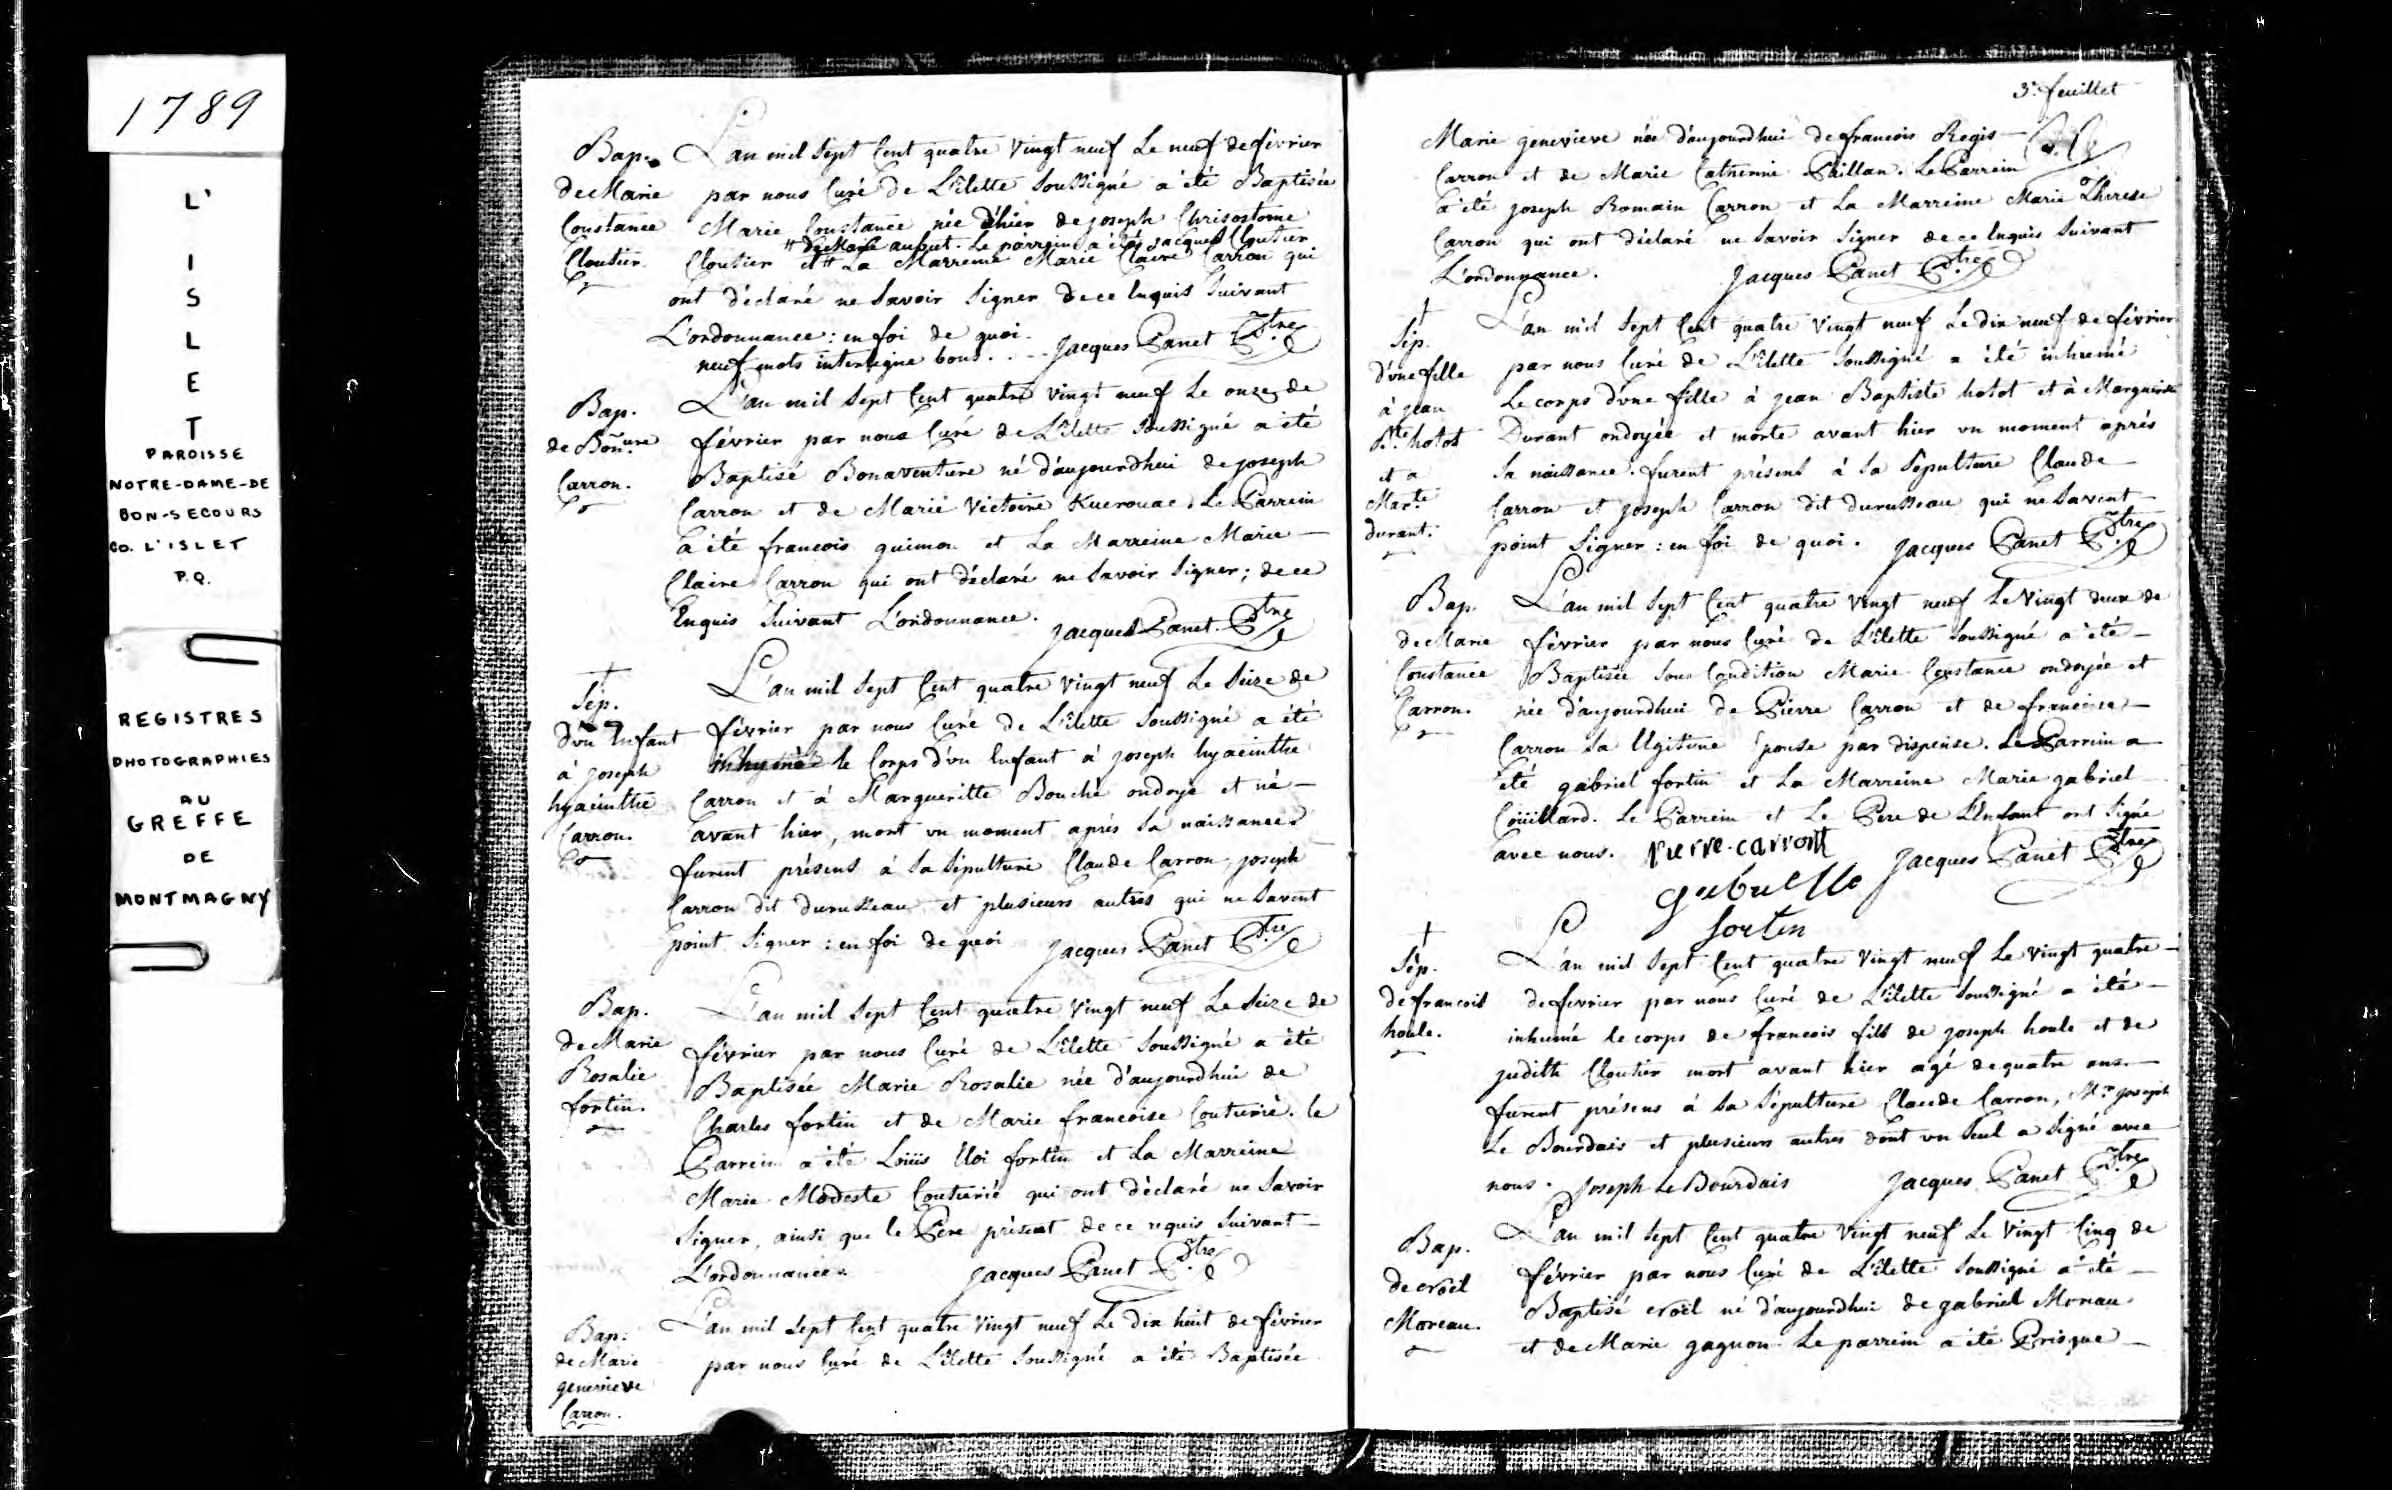 1789
L'
I
S
L
E
T
PAROISSE
NOTRE-DAME-DE
BON-SECOURS
CO. L'ISLET
P.Q.
REGISTRES
PHOTOGRAPHIES
AU
GREFFE
DE
MONTMAGNY
Bap.
de Marie
Constance
Cloutier
L'an mil Sept Cent quatre Vingt neuf Le neuf de février
par nous Curé de L'ilette Soussigné a été Baptisée
Marie Constance née d'hier de joseph Chrisostome
# de Marie aubut. Le parrein a été jacques Cloutier
Cloutier et # La Marreine Marie Claire Carron qui
ont déclaré ne Savoir Signer de ce Enquis Suivant
L'ordonnance : en foi de quoi.
neuf mots interligne bons. . - . Jacques Panet Ptre
Bap.
de Bonure
Carron.
L'an mil Sept Cent quatre Vingt neuf Le onze de
février par nous Curé de L'ilette Soussigné a été
Baptisé Bonaventure né d'aujourdhui de joseph
Carron et de Marie Victoire Kuerouac. Le Parrein
a été francois guimon et La Marreine Marie —
Claire Carron qui ont déclaré ne Savoir Signer ; de ce
Enquis Suivant L'ordonnance. Jacques Panet Ptre
†
Sep.
d'vn Enfant
à joseph
hyacinthe
Carron.
L'an mil Sept Cent quatre Vingt neuf Le Seize de
février par nous Curé de L'ilette Soussigné a été
inhumé le Corps d'vn Enfant à joseph hyacinthe
Carron et à Margueritte Bouché ondoyé et né —
avant hier, mort vn moment aprés Sa naissance.
furent présens à Sa Sépulture Claude Carron, joseph
Carron dit durusseau et plusieurs autres qui ne Savent
point Signer : en foi de quoi Jacques Panet Ptre
Bap.
de Marie
Rosalie
fortin.
L'an mil Sept Cent quatre Vingt neuf Le Seize de
février par nous Curé de L'ilette Soussigné a été
Baptisée Marie Rosalie née d'aujourdhui de
Charles fortin et de Marie francoise Couturié. le
Parrein a été Loüis Eloi fortin et La Marreine
Marie Modeste Couturié qui ont déclaré ne Savoir
Signer, ainsi que le Pere présent de ce requis Suivant —
L'ordonnance. Jacques Panet Ptre
Bap.
de Marie
genevieve
Carron.
L'an mil Sept Cent quatre Vingt neuf Le dix huit de février
par nous Curé de L'ilette Soussigné a été Baptisée
3e. feuillet
Marie genevieve née d'aujourdhui de francois Regis —
Carron et de Marie Catherine Paillan. Le Parrein
a été joseph Romain Carron et La Marreine Marie Therese
Carron qui ont déclaré ne Savoir Signer de ce Enquis Suivant
L'ordonnance. Jacques Panet Ptre
†
Sep.
d'vne fille
à jean
Bte. hotot
et a
Marte.
durant.
L'an mil Sept Cent quatre Vingt neuf Le dix neuf de février
par nous Curé de L'ilette Soussigné a été inhumé
Le corps d'vne fille à jean Baptiste hotot et à Margueritte
Durant ondoyée et morte avant hier vn moment aprés
Sa naissance. furent présens à Sa Sépulture Claude —
Carron et joseph Carron dit durusseau qui ne Savent —
point Signer : en foi de quoi. Jacques Panet Ptre
Bap.
de Marie
Constance
Carron.
L'an mil Sept Cent quatre Vingt neuf Le Vingt deux de
février par nous Curé de L'ilette Soussigné a été —
Baptisée Sous Condition Marie Constance ondoyée et
née d'aujourdhui de Pierre Carron et de francoise —
Carron Sa légitime épouse par dispense. Le Parrein a
été gabriel fortin et La Marreine Marie gabriel —
Coüillard. Le Parrein et Le Pere de L'Enfant ont Signé
avec nous. pierre-carront Jacques Panet Ptre
gabrielle
fortin
†
Sép.
de francois
houle.
L'an mil Sept Cent quatre Vingt neuf Le vingt quatre —
de fevrier par nous Curé de L'ilette Soussigné a été —
inhumé le corps de francois fils de joseph houle et de
judith Cloutier mort avant hier agé de quatre ans —
furent présens à Sa Sépulture Claude Carron, Mr. joseph
Le Bourdais et plusieurs autres dont vn Seul a Signé avec
nous. Joseph Le Bourdais Jacques Panet Ptre
Bap.
de croël
Moreau.
L'an mil Sept Cent quatre Vingt neuf Le Vingt Cinq de
février par nous Curé de L'ilette Soussigné a été —
Baptisé croël né d'aujourdhui de gabriel Moreau
et de Marie gagnon. Le parrein a été Prisque —